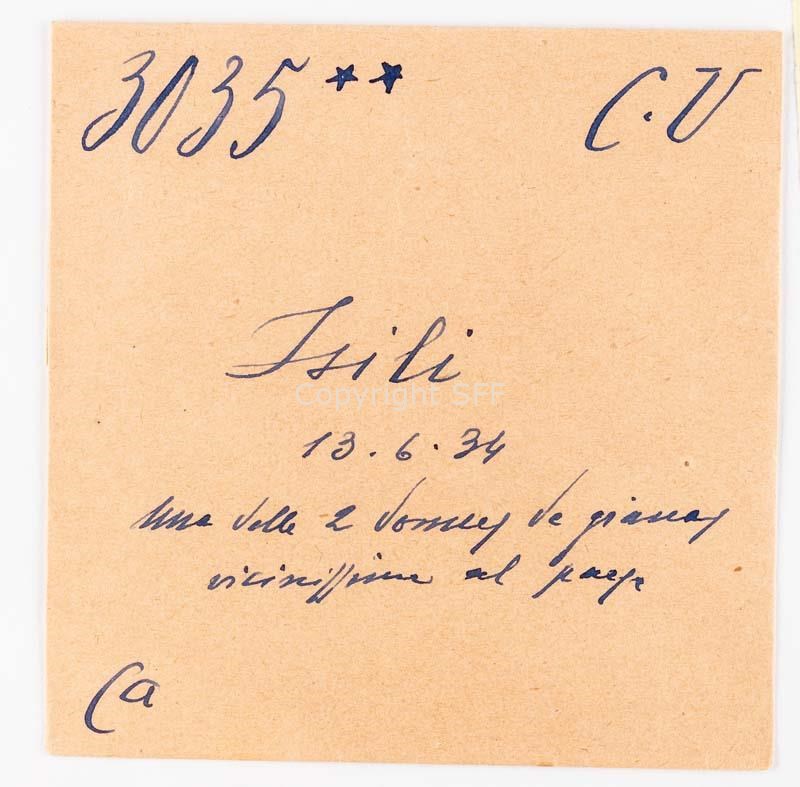 3035** C.V
Isili
Copyright SFF
13.6.34
Una delle 2 domus de gianas
vicinissime al paese
Ca